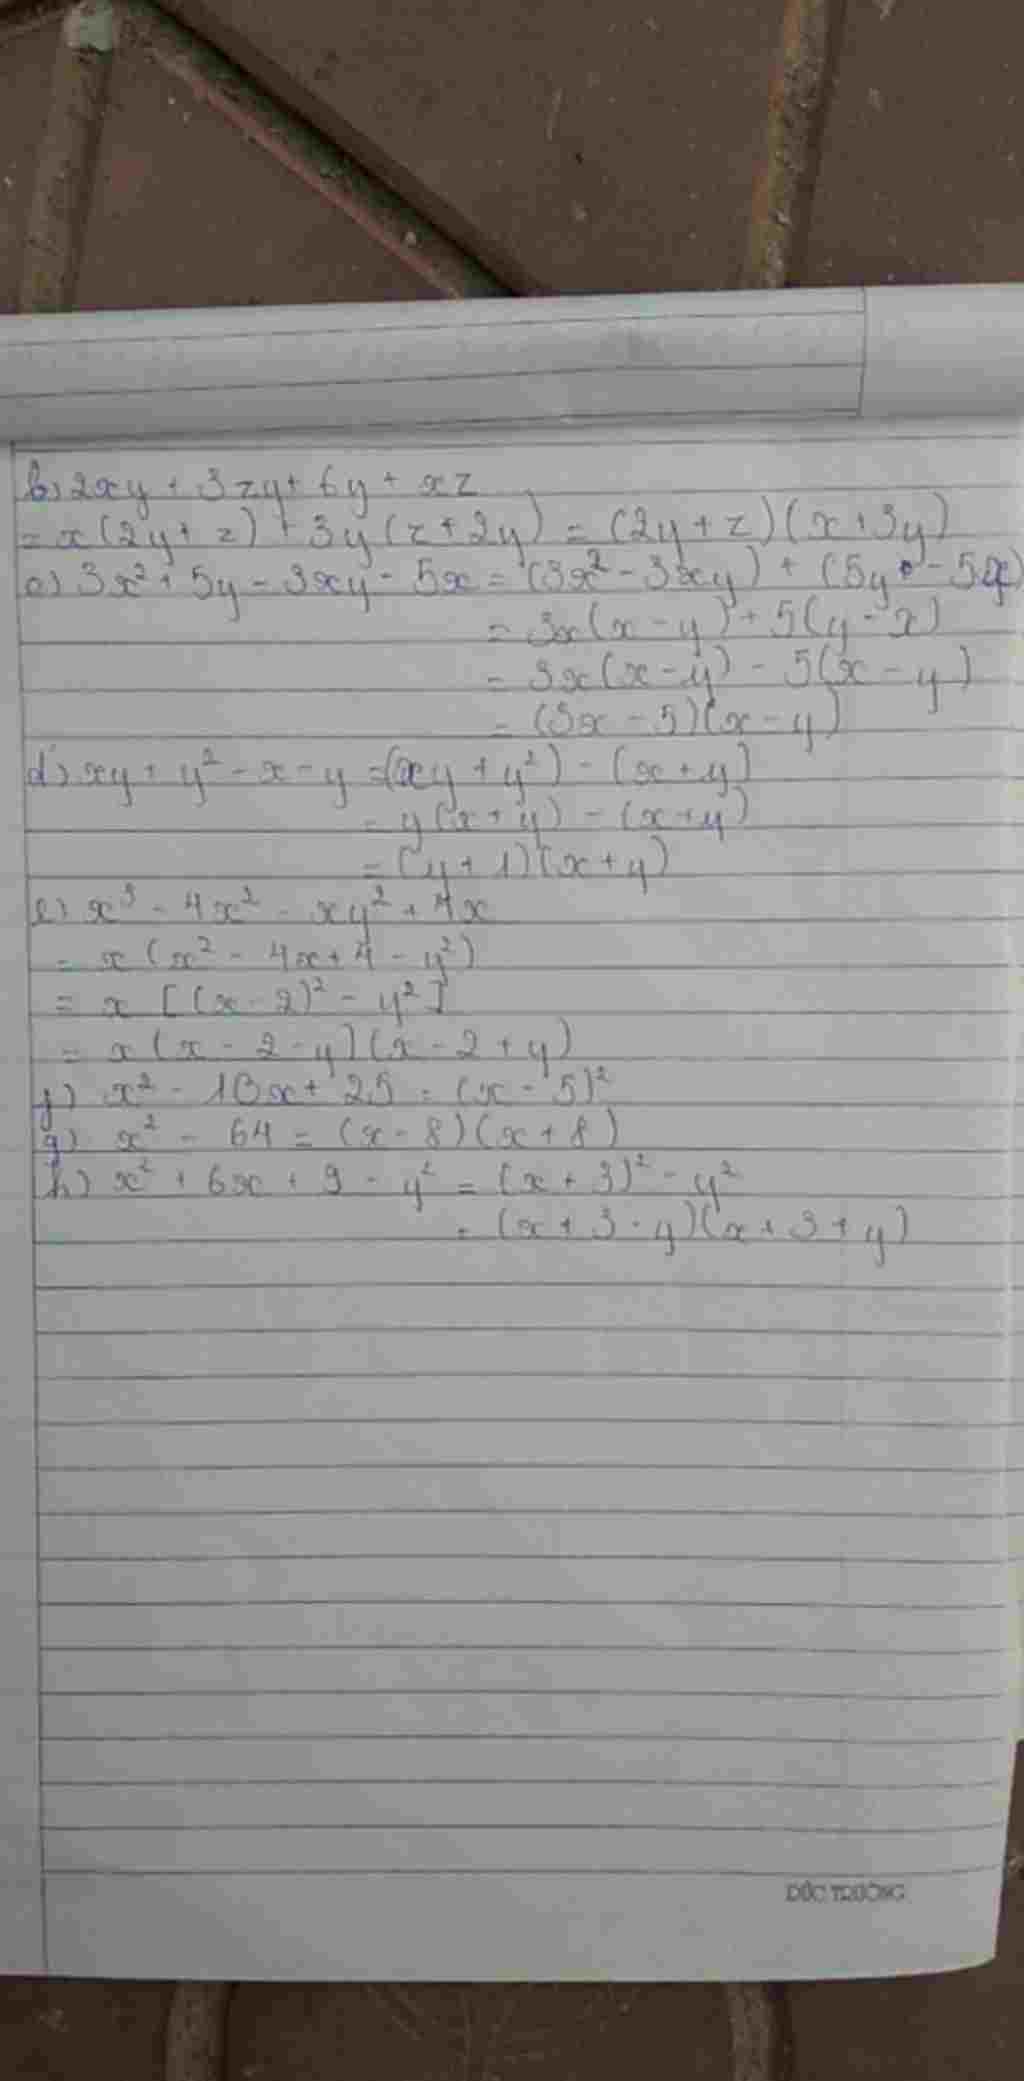 b) 2xy + 3zy + 6y + xz
= x(2y + z) + 3y(z + 2y) = (2y + z)(x + 3y)
c) 3x² + 5y - 3xy - 5x = (3x² - 3xy) + (5y - 5x)
= 3x(x - y) + 5(y - x)
= 3x(x - y) - 5(x - y)
= (3x - 5)(x - y)
d) xy + y² - x - y = (xy + y²) - (x + y)
= y(x + y) - (x + y)
= (y + 1)(x + y)
e) x³ - 4x² - xy² + 4x
= x(x² - 4x + 4 - y²)
= x[(x - 2)² - y²]
= x(x - 2 - y)(x - 2 + y)
f) x² - 10x + 25 = (x - 5)²
g) x² - 64 = (x - 8)(x + 8)
h) x² + 6x + 9 - y² = (x + 3)² - y²
= (x + 3 - y)(x + 3 + y)
ĐỨC TRƯỜNG